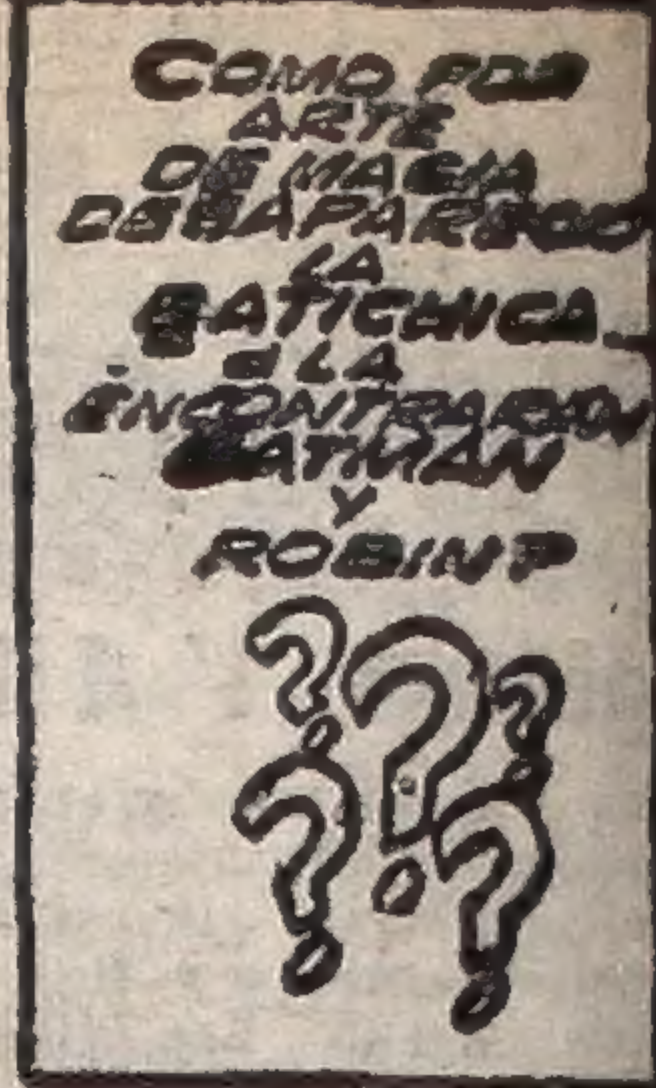 COMO POR
ARTE
DE MAGIA
DESAPARECIO
LA
BATICHICA...
¿LA
ENCONTRARAN
BATMAN
Y
ROBIN?
? ? ?
? ?